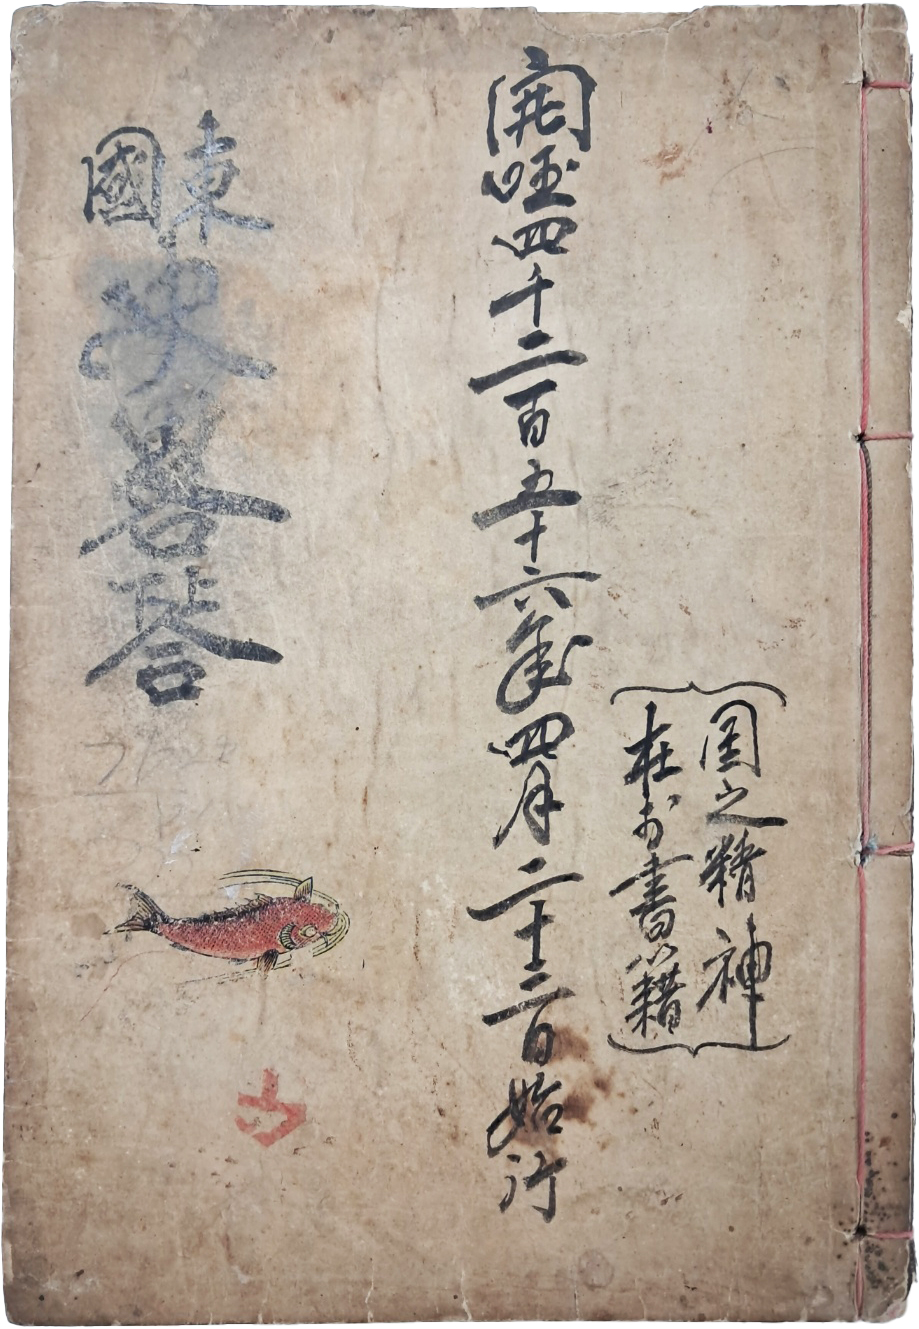 国之精神
在於書籍
開国四千二百五十六年四月二十三日始行
東國
史畧